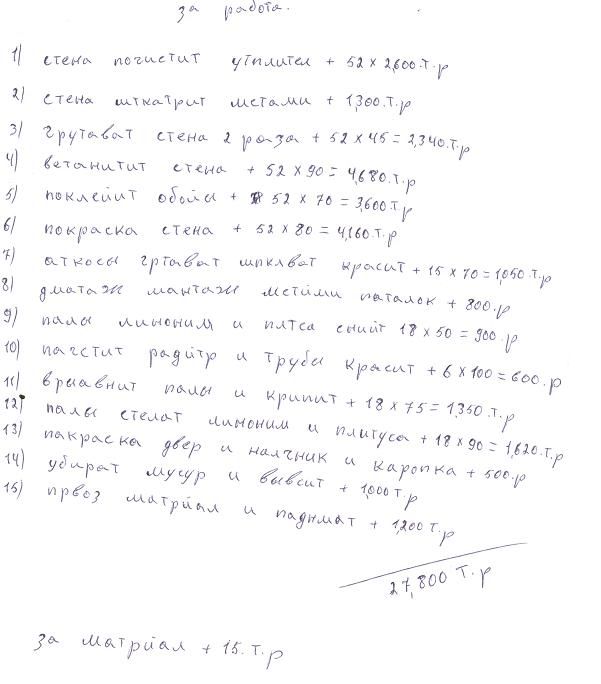 за работа.
1) стена почистит утплител + 52 × 2,600.т.р
2) стена шткатрит местами + 1,300.т.р
3) грутават стена 2 раза + 52 × 45 = 2,340.т.р
4) ветанитит стена + 52 × 90 = 4,680.т.р
5) поклейит обойы + 52 × 70 = 3,600.т.р
6) покраска стена + 52 × 80 = 4,160.т.р
7) аткосы гртават шпклват красит + 15 × 70 = 1,050.т.р
8) дматаж мантаж местими паталок + 800.р
9) палы линоним и плтса снийт 18 × 50 = 900.р
10) пагстит радитр и трубы красит + 6 × 100 = 600.р
11) врыавнит палы и крипит + 18 × 75 = 1,350.т.р
12) палы стелат линоним и плитуса + 18 × 90 = 1,620.т.р
13) пакраска двер и налчник и каропка + 500.р
14) убират мусур и вывсит + 1,000т.р
15) првоз матрйал и паднмат + 1,200т.р
27,800 т.р
за матрйал + 15.т.р